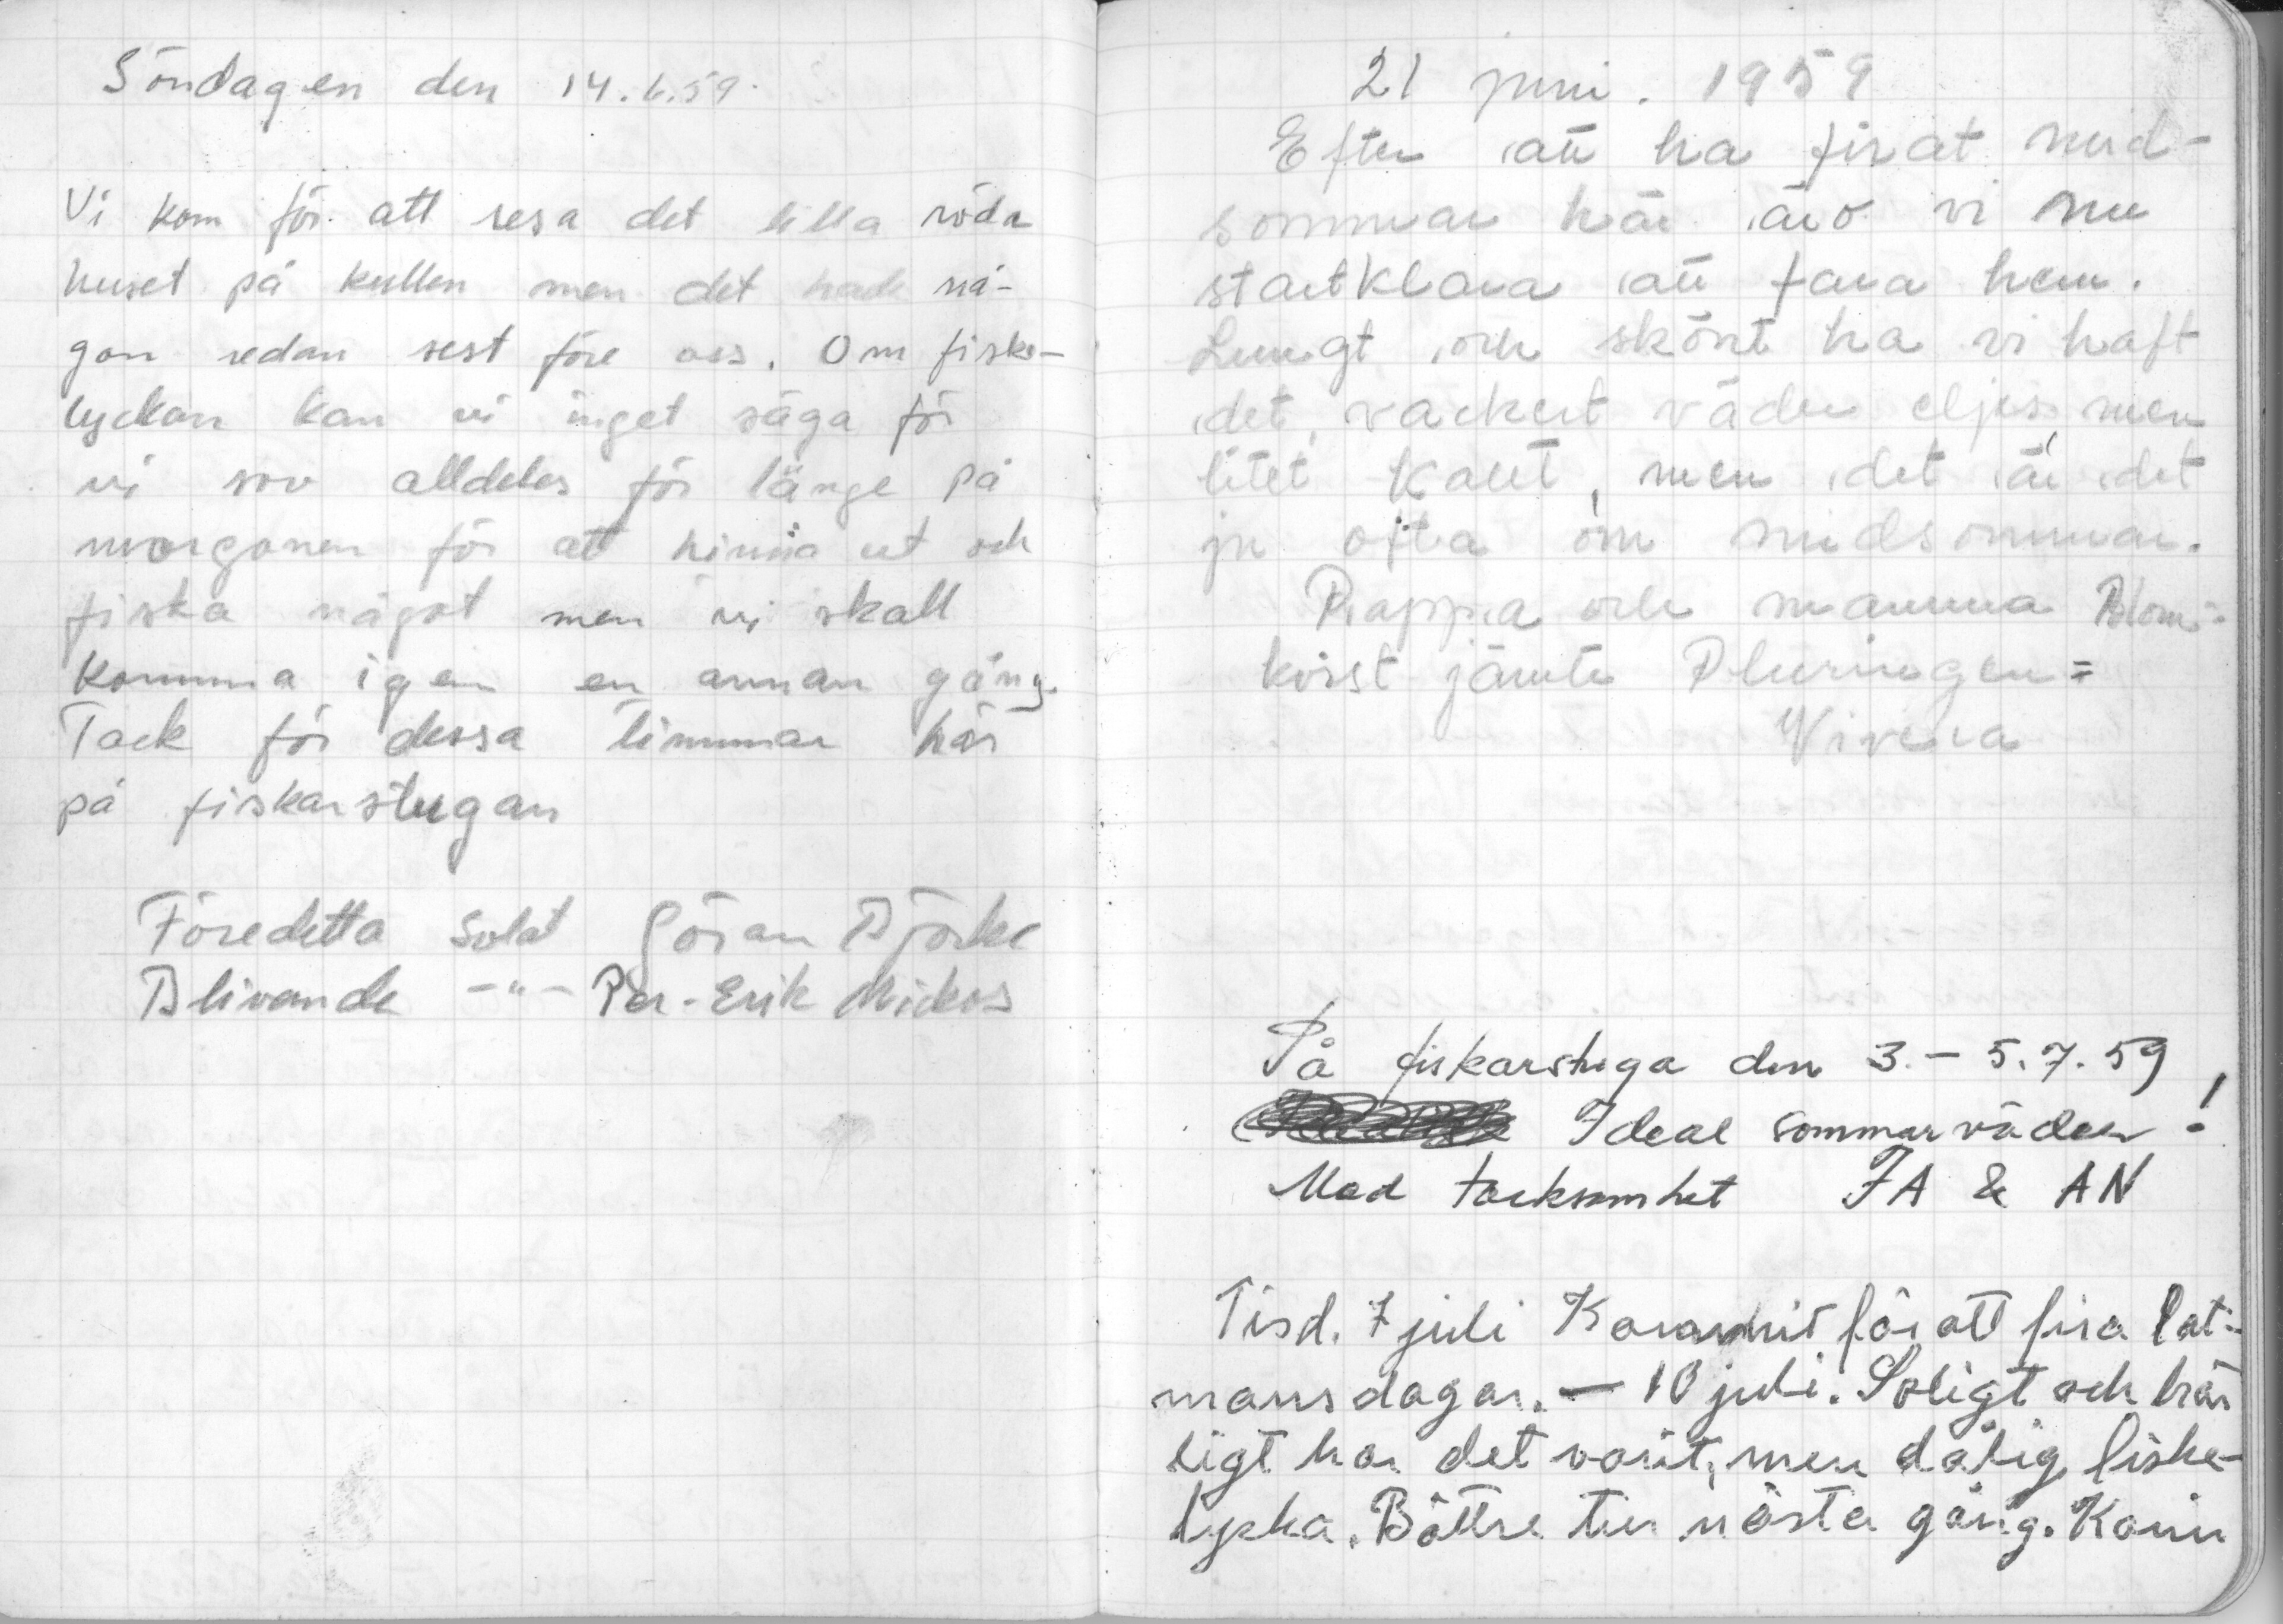 Söndagen den 14.6.59.
Vi kom för att resa det lilla röda
huset på kullen men det hade nå-
gon redan rest före oss. Om fiske-
lyckan kan vi inget säga för
vi sov alldeles för länge på
morgonen för att hinna ut och
fiska något men vi skall
komma igen en annan gång.
Tack för dessa timmar här
på fiskarstugan
Föredetta Solat Göran Björke
Blivande -"- Per-Erik Mickos
21 juni. 1959
Efter att ha firat mid-
sommar här äro vi nu
startklara att fara hem.
Lungt och skönt ha vi haft
det, vackert väder eljes, men
litet kallt, men det är det
ju ofta om midsommar.
Pappa och mamma Blom-
kvist jämte Pluringen =
Vivera
På fiskarstuga den 3.- 5.7.59
Ideal sommarväder!
Med tacksamhet FA & AN
Tisd. 7 juli Kom hit för att fira lat-
mansdagar. — 10 juli. Soligt och här
ligt har det varit, men dålig fiske-
lycka. Bättre tur nästa gång. Karin